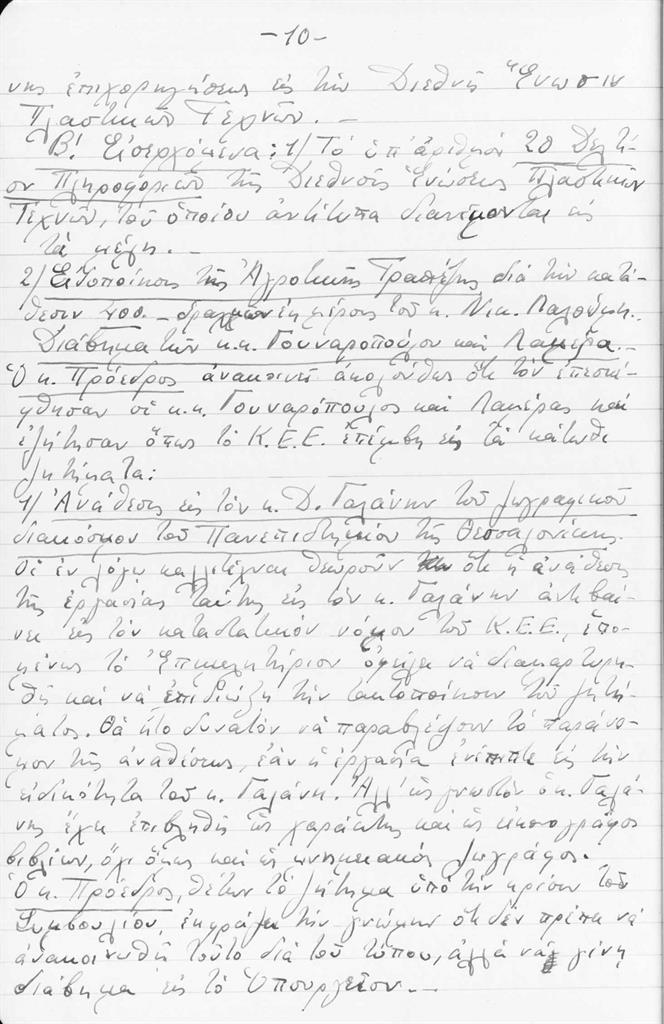 -10-
νης ἐπιχορηγήσεως εἰς τὴν Διεθνῆ Ἕνωσιν
Πλαστικῶν Τεχνῶν. -
Β! Εἰσερχόμενα: 1/ Τὸ ὑπ' ἀριθμὸν 20 Δελτί-
ον Πληροφοριῶν τῆς Διεθνοῦς Ἑνώσεως Πλαστικῶν
Τεχνῶν, τοῦ ὁποίου ἀντίτυπα διανέμονται εἰς
τὰ μέλη. -
2/ Εἰδοποίησις τῆς Ἀγροτικῆς Τραπέζης διὰ τὴν κατά-
θεσιν δραχμῶν ἐκ μέρους τοῦ κ. Νικ.
Διάβημα τῶν κ.κ. Γουναροπούλου καὶ Λαμέρα. -
Ὁ κ. Πρόεδρος ἀνακοινεῖ ἀκολούθως ὅτι τὸν ἐπεσκέ-
φθησαν οἱ κ.κ. Γουναρόπουλος καὶ Λαμέρας καὶ
ἐζήτησαν ὅπως τὸ Κ.Ε.Ε. ἐπέμβη εἰς τὰ κάτωθι
ζητήματα:
1/ Ἀνάθεσις εἰς τὸν κ. Δ. Γαλάνην τοῦ ζωγραφικοῦ
διακόσμου τοῦ Πανεπιστημίου τῆς Θεσσαλονίκης.
Οἱ ἐν λόγῳ καλλιτέχναι θεωροῦν ὅτι ἡ ἀνάθεσις
τῆς ἐργασίας ταύτης εἰς τὸν κ. Γαλάνην ἀντιβαί-
νει εἰς τὸν καταστατικὸν νόμον τοῦ Κ.Ε.Ε., ἑπο-
μένως τὸ Ἐπιμελητήριον ὀφείλει νὰ διαμαρτυρη-
θῆ καὶ νὰ ἐπιδιώξη τὴν τακτοποίησιν τοῦ ζητή-
ματος. Θὰ ἦτο δυνατὸν νὰ παραβλέψουν τὸ παράνο-
μον τῆς ἀναθέσεως, ἐὰν ἡ ἐργασία ἐνέπιπτε εἰς τὴν
εἰδικότητα τοῦ κ. Γαλάνη. Ἀλλ' ὡς γνωστὸν ὁ κ. Γαλά-
νης ἔχει ἐπιβληθῆ ὡς χαράκτης καὶ ὡς εἰκονογράφος
βιβλίων, ὄχι ὅμως καὶ ὡς μνημειακὸς ζωγράφος.
Ὁ κ. Πρόεδρος, θέτων τὸ ζήτημα ὑπὸ τὴν κρίσιν τοῦ
Συμβουλίου, ἐκφράζει τὴν γνώμην ὅτι δὲν πρέπει νὰ
ἀνακοινωθῆ τοῦτο διὰ τοῦ τύπου, ἀλλὰ νὰ γίνη
διάβημα εἰς τὸ Ὑπουργεῖον. -